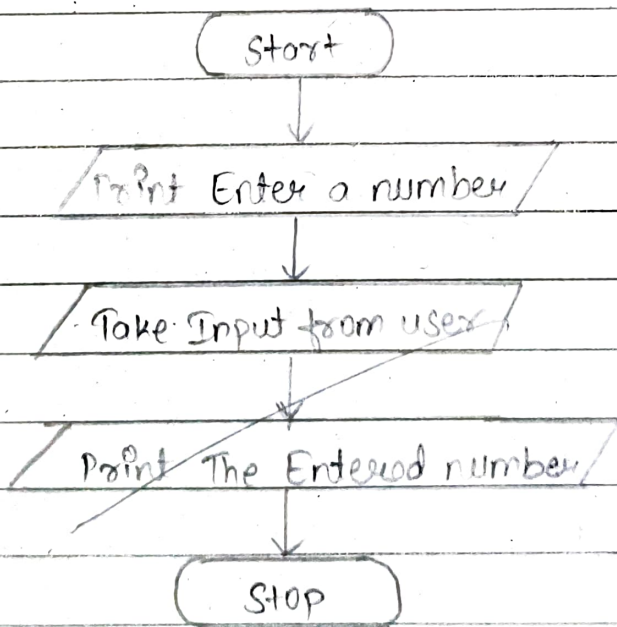 Start
Print Enter a number
Take Input from user
Print The Entered number
Stop